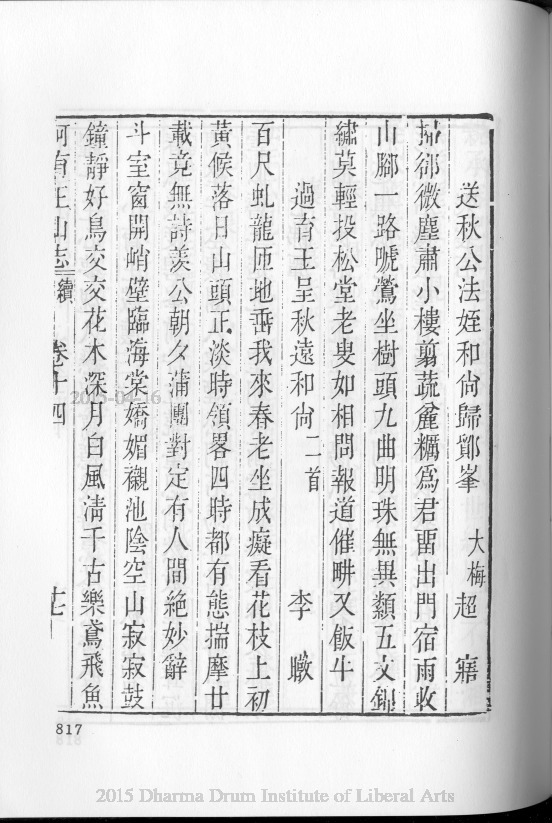 送秋公法姪和尚歸鄮峯　大梅超寤
掃卻微塵肅小樓剪蔬麄糲爲君畱出門宿雨收
山腳一路唬鶯坐樹頭九曲明珠無異纇五文錦
繡莫輕投松堂老叟如相問報道催畊又飯牛
過育王呈秋遠和尚二首　李暾
百尺虬龍匝地垂我來春老坐成癡看花枝上初
黃候落日山頭正淡時領畧四時都有態揣摩廿
載竟無詩羨公朝夕蒲團對定有人間絶妙辭
斗室窗開峭壁臨海棠嬌媚襯池陰空山寂寂鼓
鐘靜好鳥交交花木深月白風清千古樂鳶飛魚
阿育王山志 續 卷十四 十七
817
2015-04-16
2015 Dharma Drum Institute of Liberal Arts